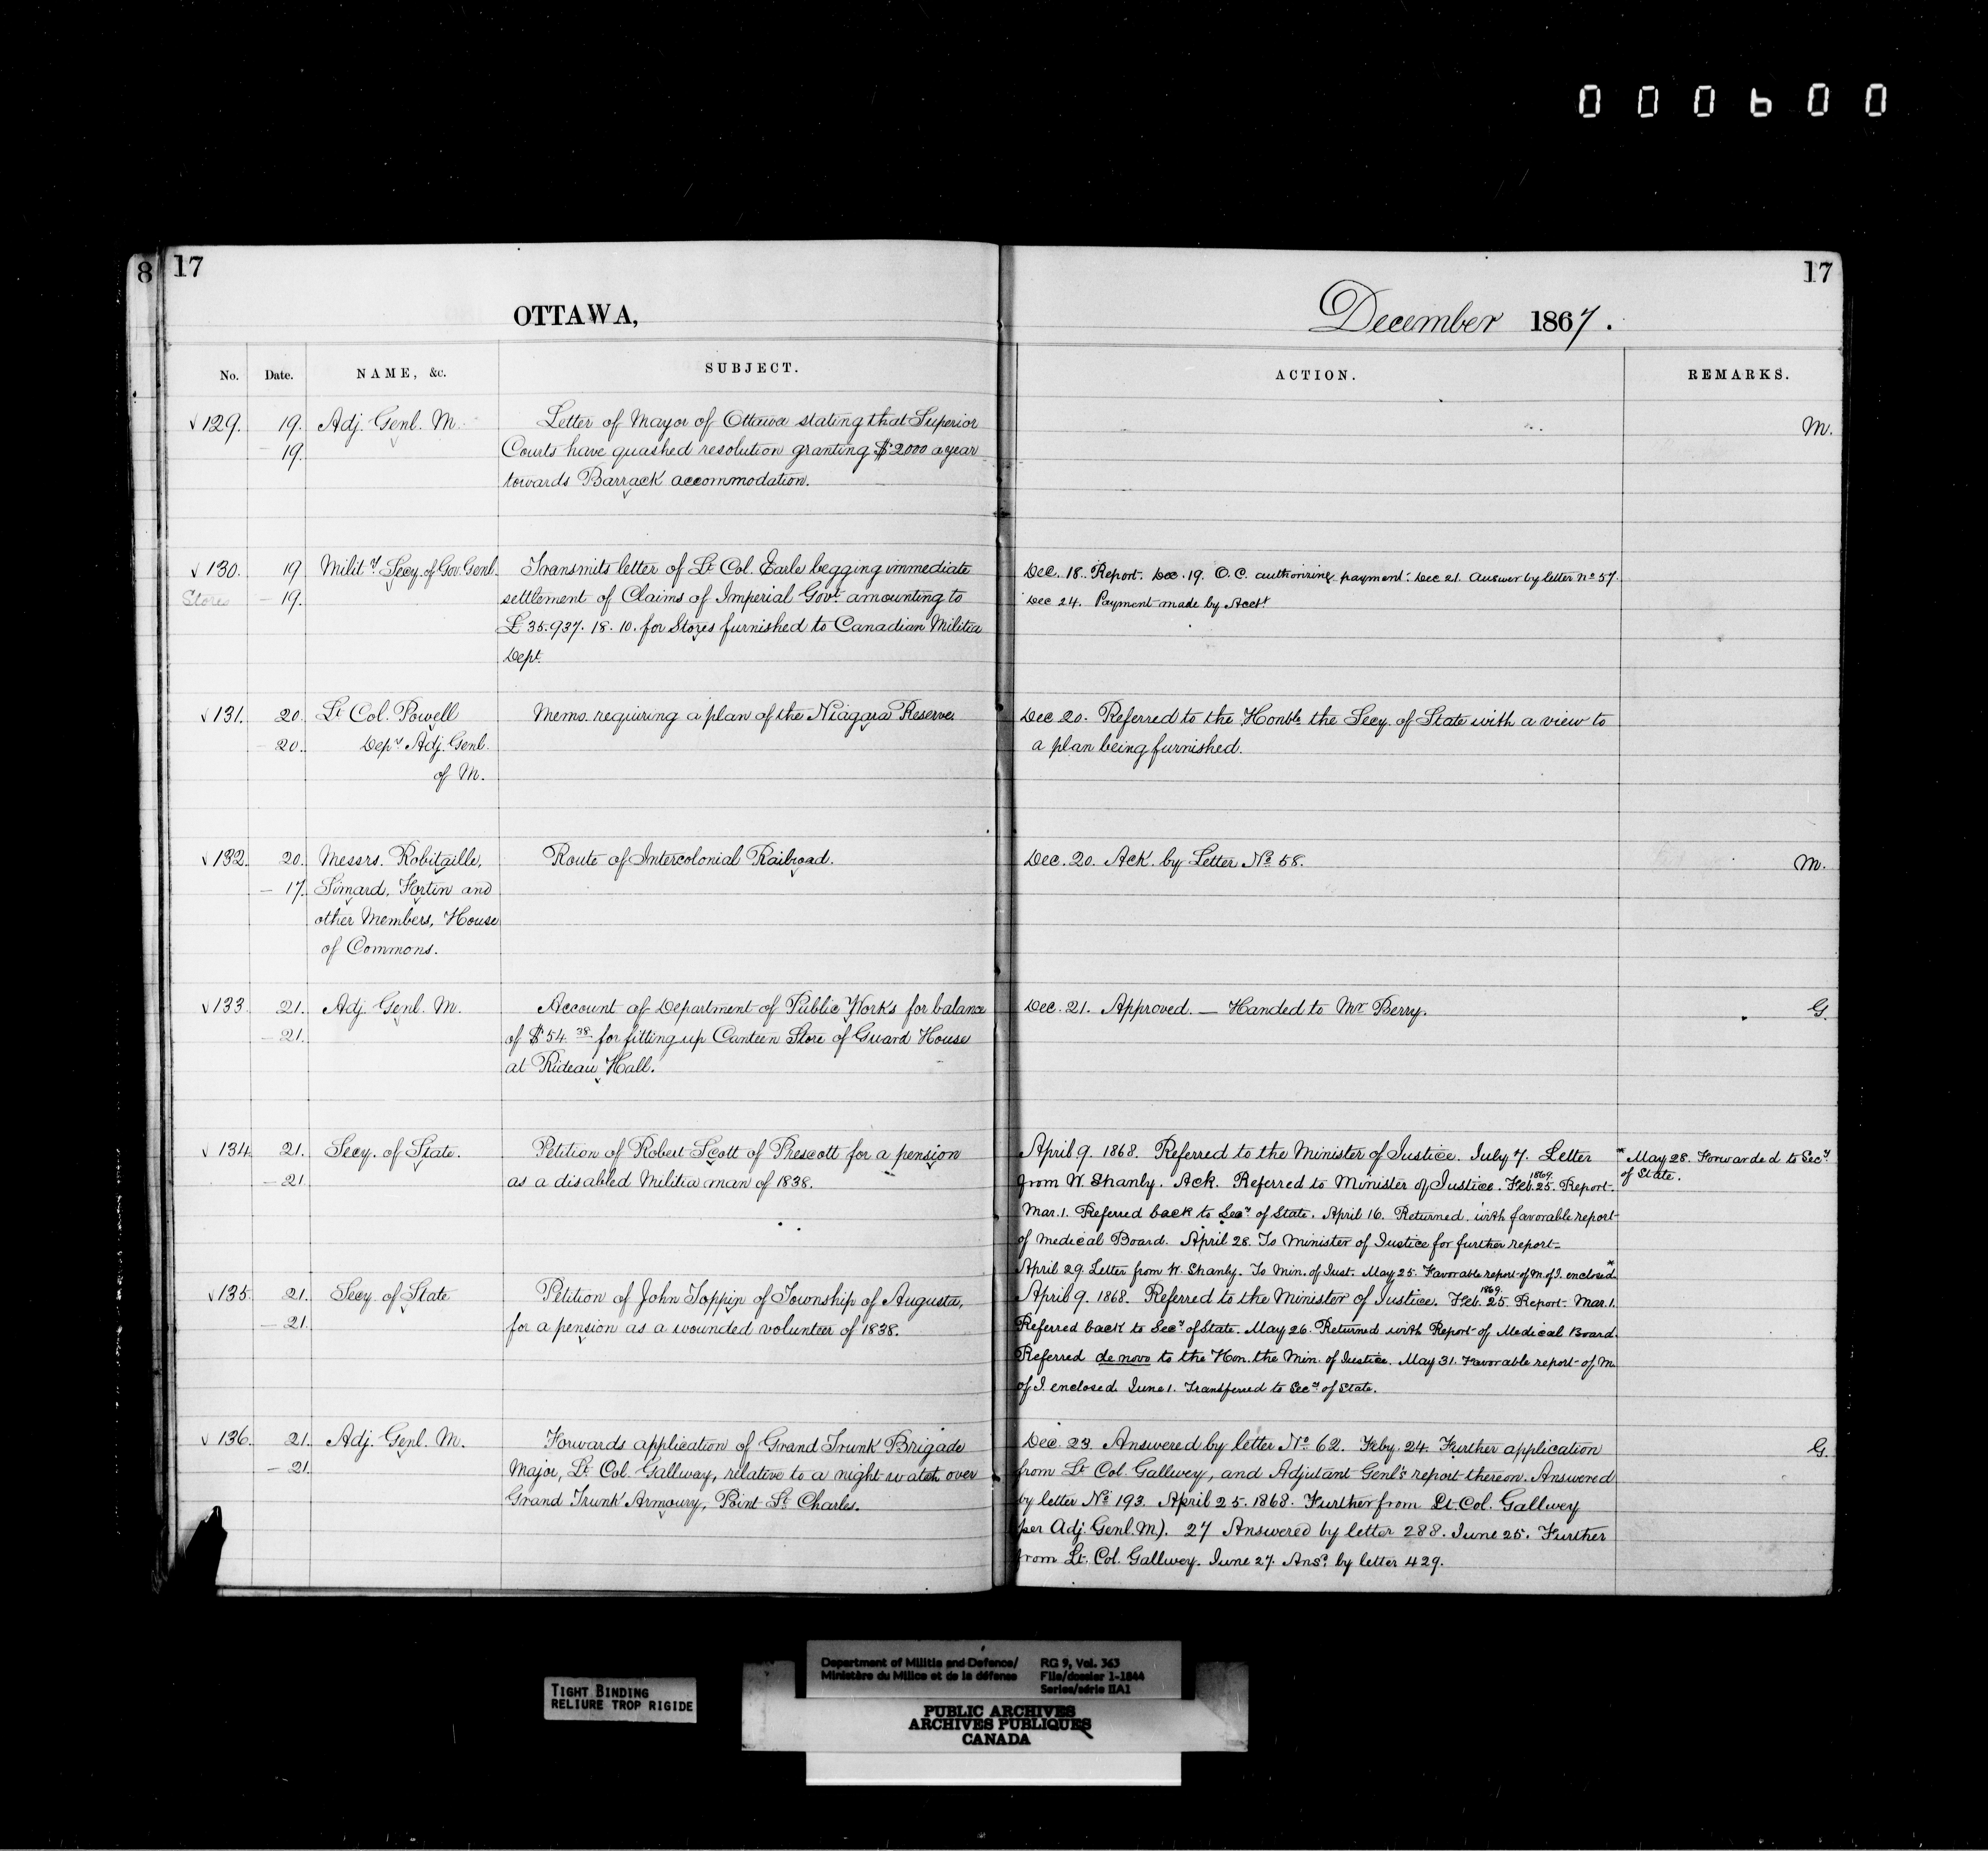 000600
8 17
17
OTTAWA,
December 1867.
No. Date. NAME, &c. SUBJECT. ACTION. REMARKS.
√ 129. 19. Adj. Genl. M. Letter of Mayor of Ottawa stating that Superior M.
— 19. Courts have quashed resolution granting $2000 a year
towards Barrack accommodation.
√ 130. 19 Milit.y Secy. of Gov. Genl. Transmits letter of Lt Col. Earle begging immediate Dec. 18. Report. Dec. 19. O.C. authorizing payment. Dec 21. Answer by letter No 57.
Stores — 19. settlement of Claims of Imperial Govt. amounting to Dec 24. Payment made by Acct.
£35.937. 18. 10. for Stores furnished to Canadian Militia
Dept.
√ 131. 20. Lt Col. Powell Memo. requiring a plan of the Niagara Reserve. Dec 20. Referred to the Honble the Secy. of State with a view to
— 20. Depy Adj. Genl. a plan being furnished.
of M.
√ 132. 20. Messrs. Robitaille, Route of Intercolonial Railroad. Dec. 20. Ack. by Letter No 58. M.
— 17. Simard, Fortin and
other Members, House
of Commons.
√ 133 21. Adj. Genl. M. Account of Department of Public Works for balance Dec. 21. Approved. — Handed to Mr Berry. G.
— 21. of $54.38 for fitting up Canteen Store of Guard House
at Rideau Hall.
√ 134 21. Secy. of State. Petition of Robert Scott of Prescott for a pension April 9. 1868. Referred to the Minister of Justice. July 7. Letter * May 28. Forwarded to Secy.
— 21 as a disabled Militia man of 1838. from W. Shanly. Ack. Referred to Minister of Justice. Feb. 25. 1869. Report. of State.
Mar. 1. Referred back to Secy of State. April 16. Returned. with favorable report
of Medical Board. April 28. To Minister of Justice for further report.
April 29 Letter from W. Shanly. To Min. of Just. May 25. Favorable report of M. of J. enclosed.*
√ 135 21. Secy. of State Petition of John Toppin of Township of Augusta, April 9. 1868. Referred to the Minister of Justice. Feb. 25. 1869. Report. Mar. 1.
— 21. for a pension as a wounded volunteer of 1838. Referred back to Secy of State. May 26. Returned with Report of Medical Board.
Referred de novo to the Hon. the Min. of Justice. May 31. Favorable report of M.
of J. enclosed. June 1. Transferred to Secy of State.
√ 136. 21. Adj. Genl. M. Forwards application of Grand Trunk Brigade Dec. 23. Answered by letter No 62. Feby. 24. Further application G.
— 21. Major, Lt. Col. Gallway, relative to a night watch over from Lt Col. Gallwey, and Adjutant Genl's report thereon. Answered
Grand Trunk Armoury, Point St Charles. by letter No 193. April 25. 1868. Further from Lt Col. Gallwey
per Adj. Genl. M). 27 Answered by letter 288. June 25. Further
from Lt. Col. Gallwey. June 27. Ansd. by letter 429.
TIGHT BINDING
RELIURE TROP RIGIDE
Department of Militia and Defence/ RG 9, Vol. 363
Ministère du Milice et de la défense File/dossier 1-1844
Series/série IIA1
PUBLIC ARCHIVES
ARCHIVES PUBLIQUES
CANADA